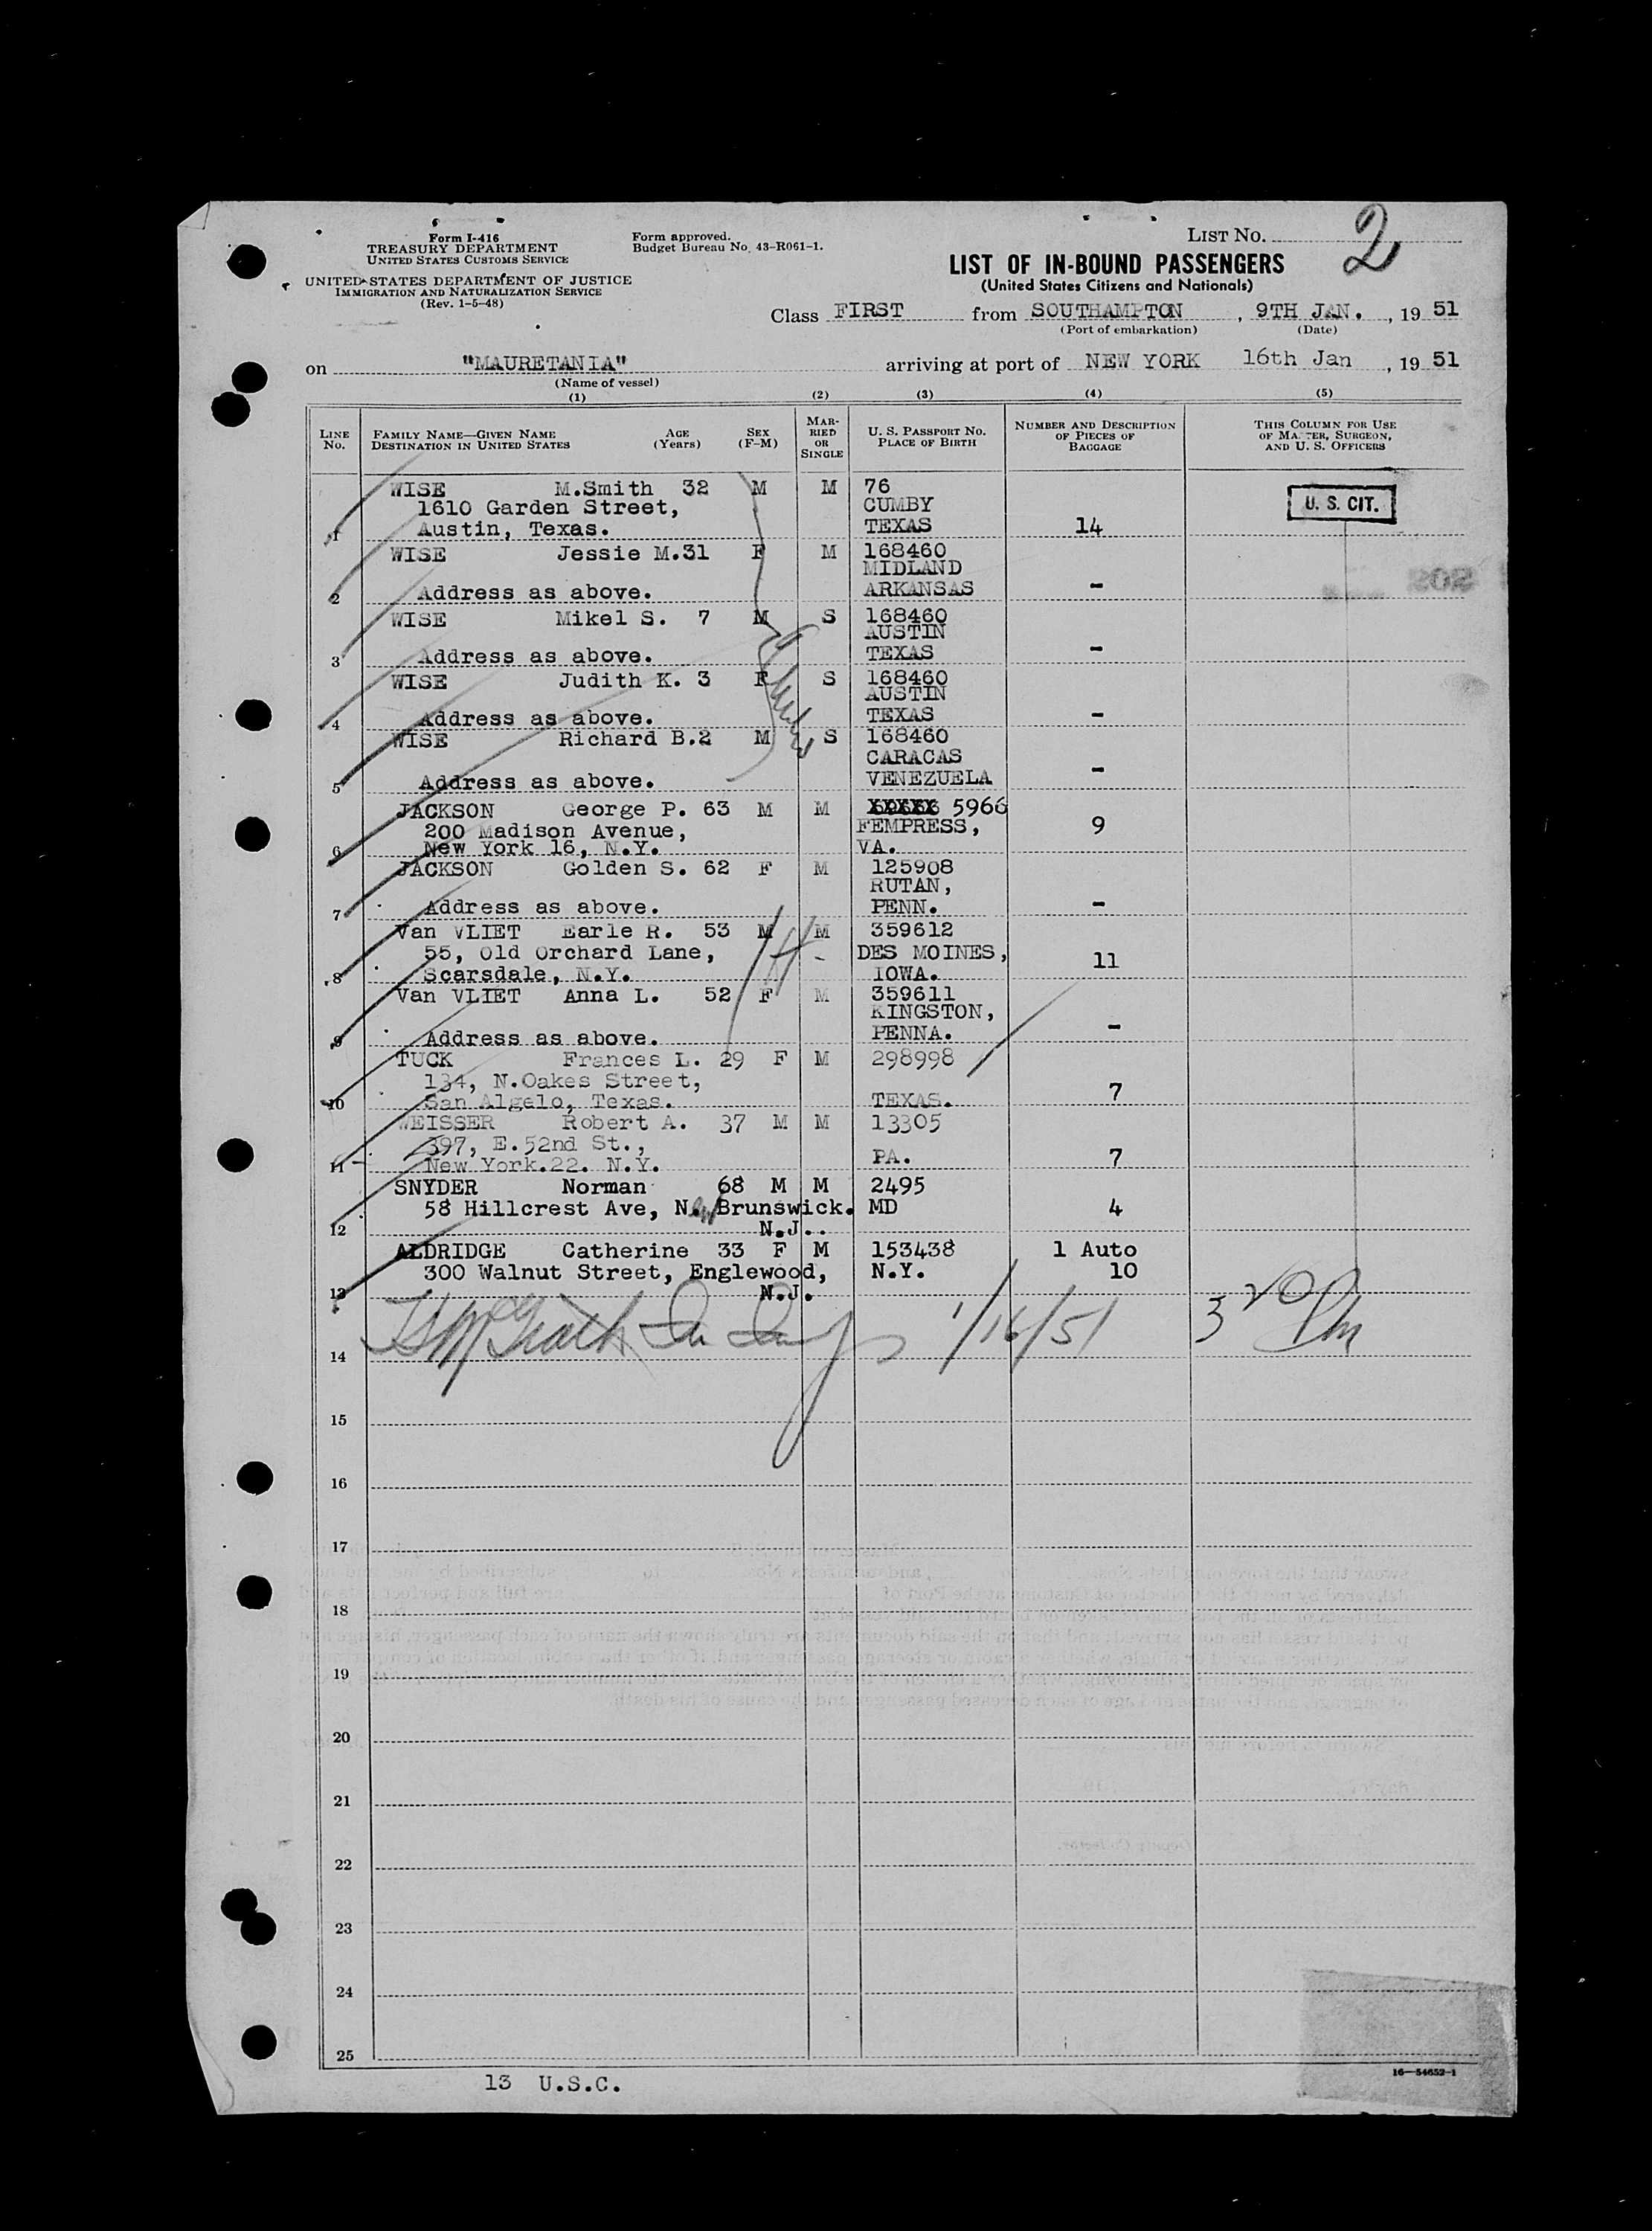 Form I-416
TREASURY DEPARTMENT
UNITED STATES CUSTOMS SERVICE
UNITED STATES DEPARTMENT OF JUSTICE
IMMIGRATION AND NATURALIZATION SERVICE
(Rev. 1-5-48)
Form approved.
Budget Bureau No. 43-R061-1.
LIST NO. 2
LIST OF IN-BOUND PASSENGERS
(United States Citizens and Nationals)
Class FIRST from SOUTHAMPTON, 9TH JAN., 1951
(Port of embarkation) (Date)
on "MAURETANIA" arriving at port of NEW YORK 16th Jan, 1951
(Name of vessel)
(1) (2) (3) (4) (5)
LINE NO. FAMILY NAME—GIVEN NAME DESTINATION IN UNITED STATES AGE (Years) SEX (F-M) MARRIED OR SINGLE U. S. PASSPORT NO. PLACE OF BIRTH NUMBER AND DESCRIPTION OF PIECES OF BAGGAGE THIS COLUMN FOR USE OF MASTER, SURGEON, AND U. S. OFFICERS
WISE M.Smith 32 M M 76
1610 Garden Street, CUMBY U. S. CIT.
1 Austin, Texas. TEXAS 14
WISE Jessie M.31 F M 168460
MIDLAND
2 Address as above. ARKANSAS -
WISE Mikel S. 7 M S 168460
AUSTIN
3 Address as above. TEXAS -
WISE Judith K. 3 F S 168460
AUSTIN
4 Address as above. TEXAS -
WISE Richard B.2 M S 168460
CARACAS
5 Address as above. VENEZUELA -
JACKSON George P. 63 M M 5966
200 Madison Avenue, FEMPRESS, 9
6 New York 16, N.Y. VA.
JACKSON Golden S. 62 F M 125908
RUTAN,
7 Address as above. PENN. -
Van VLIET Earle R. 53 M M 359612
55, Old Orchard Lane, DES MOINES, 11
8 Scarsdale, N.Y. IOWA.
Van VLIET Anna L. 52 F M 359611
KINGSTON,
9 Address as above. PENNA. -
TUCK Frances L. 29 F M 298998
134, N.Oakes Street, 7
10 San Algelo, Texas. TEXAS.
WEISSER Robert A. 37 M M 13305
397, E.52nd St.,
11 New York.22. N.Y. PA. 7
SNYDER Norman 68 M M 2495
58 Hillcrest Ave, N. Brunswick. MD 4
12 N.J..
ALDRIDGE Catherine 33 F M 153438 1 Auto
300 Walnut Street, Englewood, N.Y. 10
13 N.J.
1/16/51
14
15
16
17
18
19
20
21
22
23
24
25
13 U.S.C.
16—54652-1